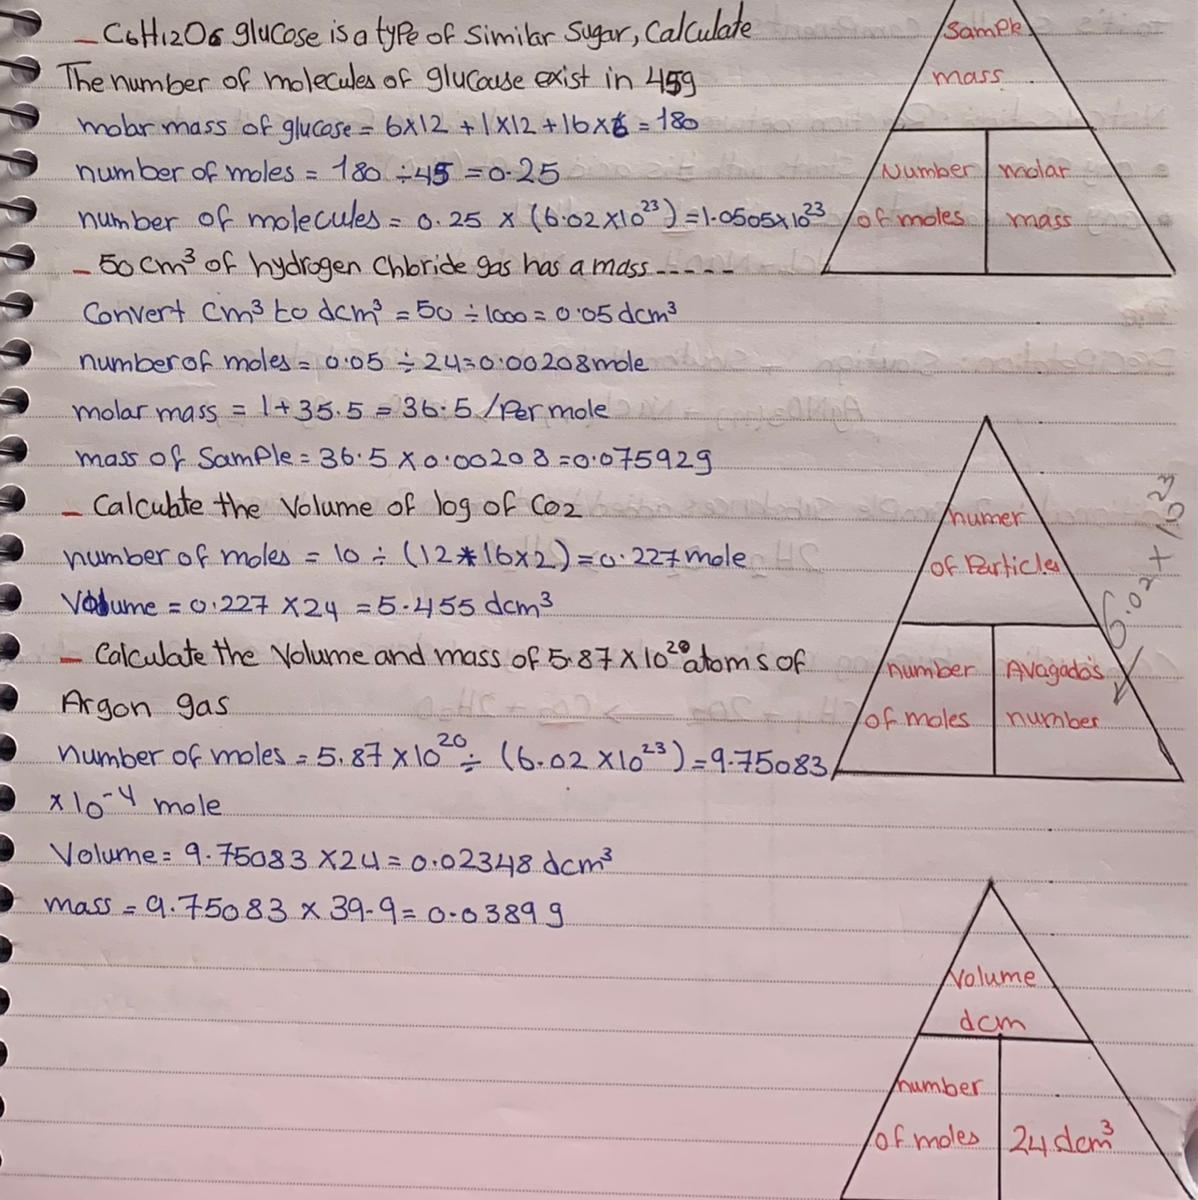 - C6H12O6 glucose is a type of Similar Sugar, Calculate
The number of molecules of glucause exist in 45g
molar mass of glucose = 6x12 + 1x12 + 16x6 = 180
number of moles = 180 ÷ 45 = 0.25
number of molecules = 0.25 x (6.02x10²³) = 1.0505x10²³
- 50 cm³ of hydrogen Chloride gas has a mass -----
Convert cm³ to dcm³ = 50 ÷ 1000 = 0.05 dcm³
number of moles = 0.05 ÷ 24 = 0.00208 mole
molar mass = 1 + 35.5 = 36.5 / Per mole
mass of Sample = 36.5 x 0.00208 = 0.07592g
- Calculate the Volume of 10g of CO2
number of moles = 10 ÷ (12 * 16x2) = 0.227 mole
Volume = 0.227 x 24 = 5.455 dcm³
- Calculate the Volume and mass of 5.87 x 10²⁰ atoms of
Argon gas
number of moles = 5.87 x 10²⁰ ÷ (6.02 x 10²³) = 9.75083
x 10⁻⁴ mole
Volume = 9.75083 x 24 = 0.02348 dcm³
mass = 9.75083 x 39.9 = 0.0389g
Sample
mass
Number
of moles
molar
mass
numer
of Particles
6.02 + 10²³
number
of moles
Avagado's
number
Volume
dcm
number
of moles
24 dcm³